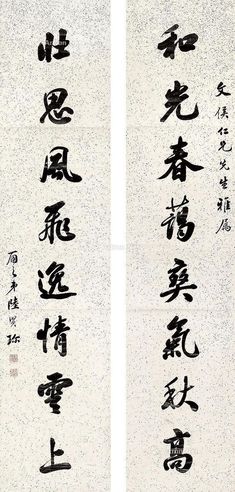 文侯仁兄先生雅屬
和光春藹爽氣秋高
壯思風飛逸情雲上
弟陸